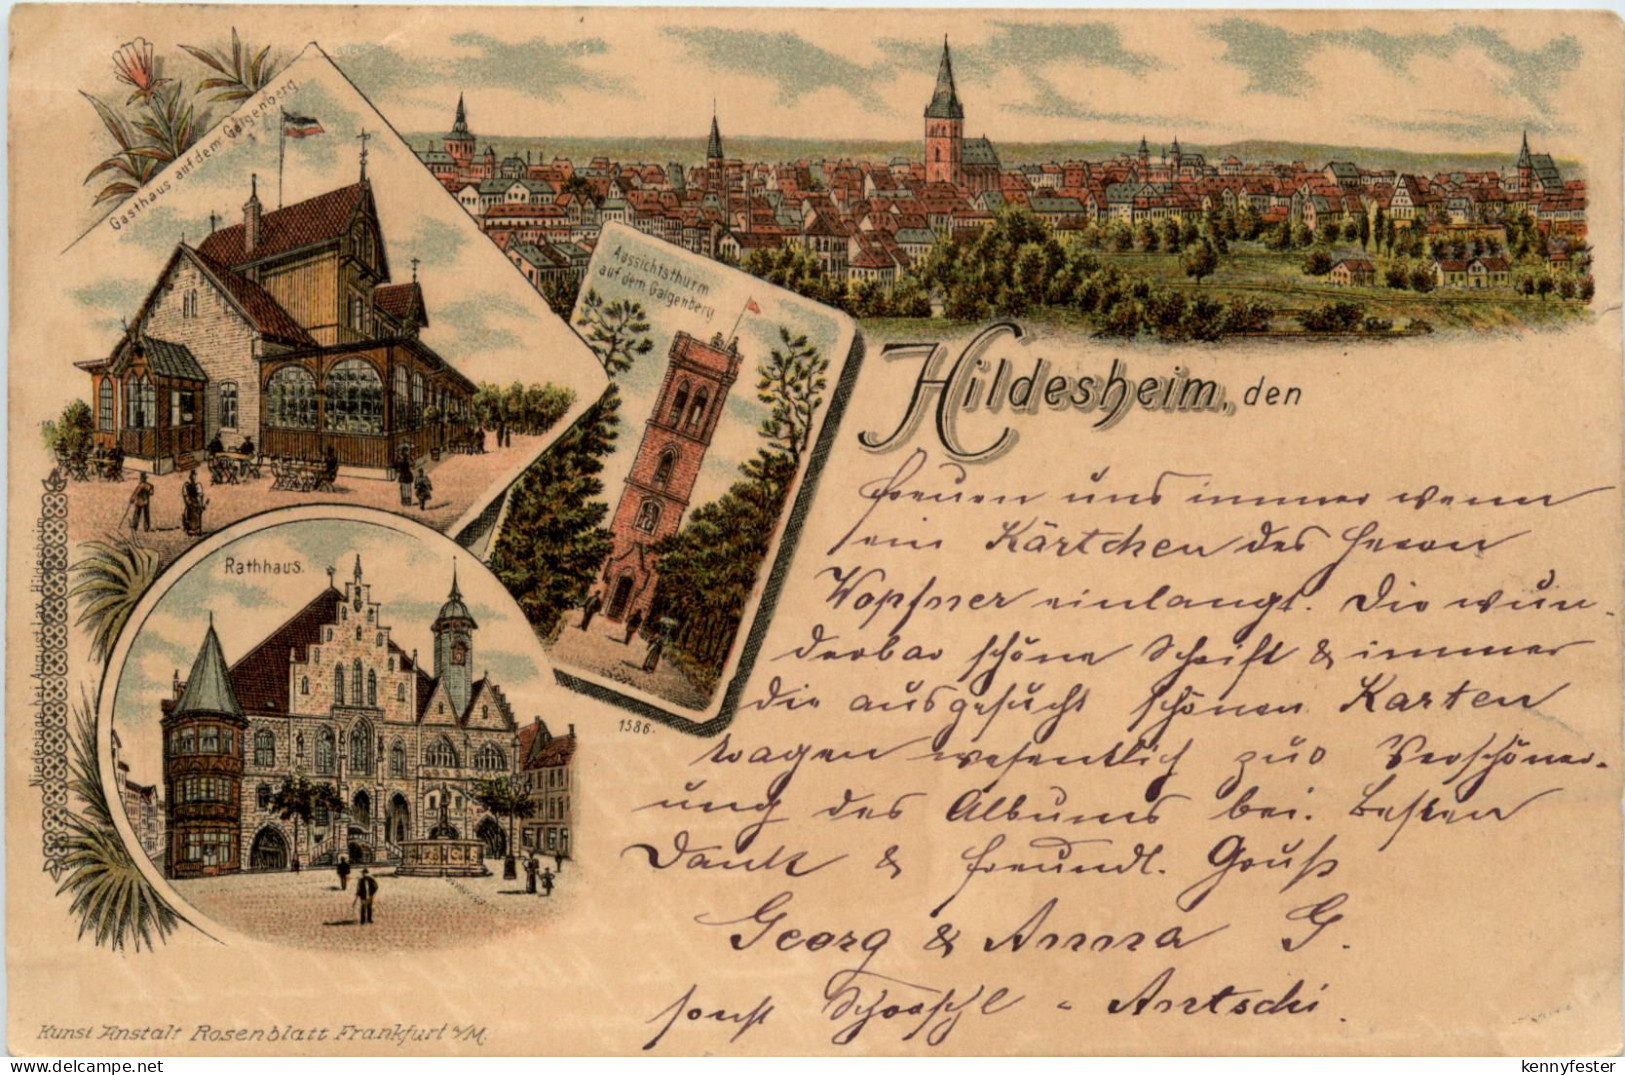 Gasthaus auf dem Galgenberg.
Aussichtsthurm
auf dem Galgenberg
Hildesheim, den
freuen uns immer wenn
ein Kärtchen des Herrn
Wopfner einlangt. Die wun-
derbar schöne Schrift & immer
die ausgesucht schönen Karten
tragen wesentlich zur Verschöner-
ung des Albums bei. Besten
Dank & freundl. Gruß
Georg & Anna G.
sonst - Antschi.
Rathhaus.
1586.
Niederlage bei August Lax, Hildesheim.
Kunst Anstalt Rosenblatt Frankfurt a/M.
kennyfester